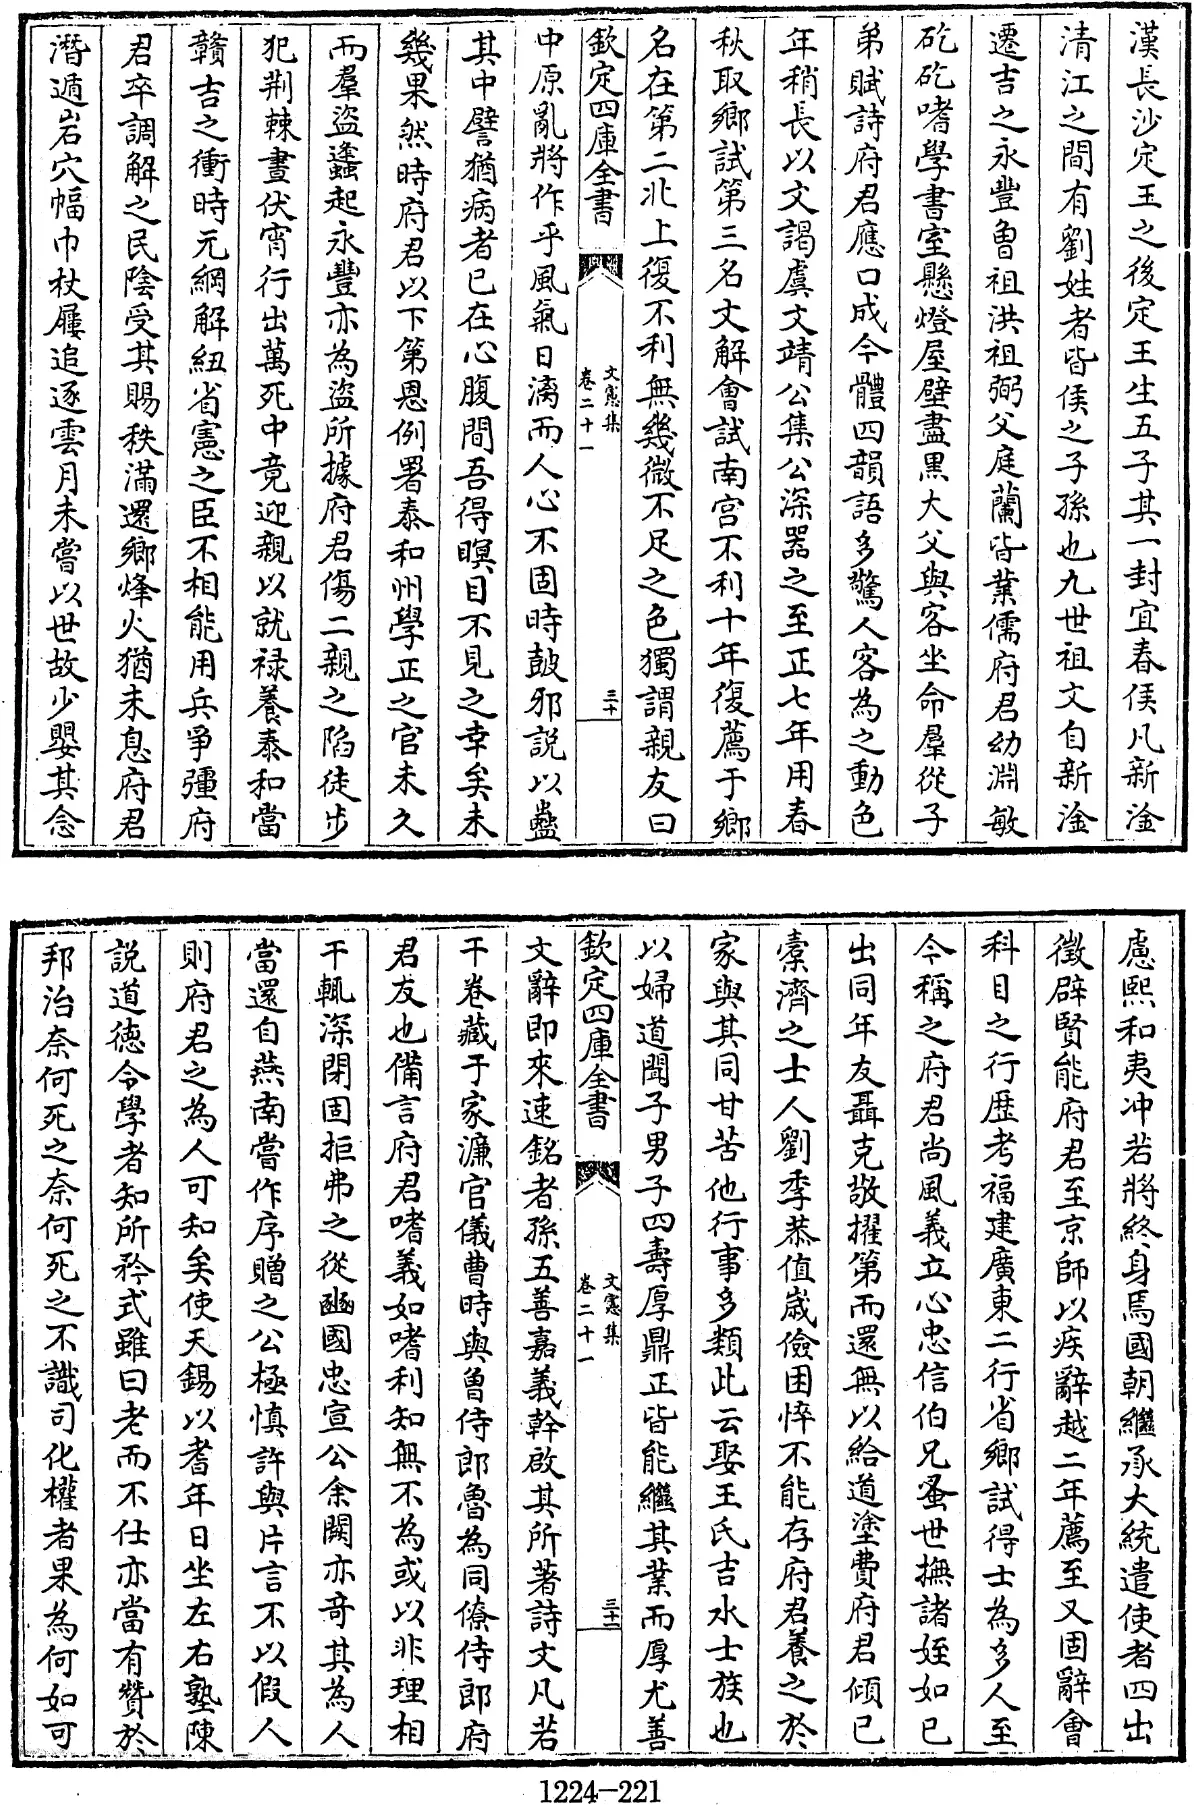 漢長沙定王之後定王生五子其一封宜春侯凡新淦
清江之間有劉姓者皆侯之子孫也九世祖文自新淦
遷吉之永豐曾祖洪祖弼父庭蘭皆業儒府君幼淵敏
矻矻嗜學書室懸燈屋壁盡黑大父與客坐命羣從子
弟賦詩府君應口成今體四韻語多驚人客為之動色
年稍長以文謁虞文靖公集公深器之至正七年用春
秋取鄉試第三名文解會試南宫不利十年復薦于鄉
名在第二北上復不利無幾微不足之色獨謂親友曰
欽定四庫全書
文憲集
卷二十一
三十
中原亂將作乎風氣日漓而人心不固時鼓邪説以蠱
其中譬猶病者已在心腹間吾得瞑目不見之幸矣未
幾果然時府君以下第恩例署泰和州學正之官未久
而羣盜蠭起永豐亦為盜所據府君傷二親之陷徒步
犯荆棘晝伏宵行出萬死中竟迎親以就禄養泰和當
贛吉之衝時元綱解紐省憲之臣不相能用兵爭彊府
君卒調解之民陰受其賜秩滿還鄉烽火猶未息府君
潛遁岩穴幅巾杖屨追逐雲月未嘗以世故少嬰其念
慮熙和夷冲若將終身焉國朝繼承大統遣使者四出
徵辟賢能府君至京師以疾辭越二年薦至又固辭會
科目之行歴考福建廣東二行省鄉試得士為多人至
今稱之府君尚風義立心忠信伯兄蚤世撫諸姪如已
出同年友聶克敬擢第而還無以給道塗費府君傾已
槖濟之士人劉季恭值嵗儉困悴不能存府君養之於
家與其同甘苦他行事多類此云娶王氏吉水士族也
以婦道聞子男子四壽厚鼎正皆能繼其業而厚尤善
欽定四庫全書
文憲集
卷二十一
三十一
文辭即來速銘者孫五善嘉義幹啟其所著詩文凡若
干卷藏于家濂官儀曹時與曾侍郎魯為同僚侍郎府
君友也備言府君嗜義如嗜利知無不為或以非理相
干輒深閉固拒弗之從豳國忠宣公余闕亦竒其為人
當還自燕南嘗作序贈之公極慎許與片言不以假人
則府君之為人可知矣使天錫以耆年日坐左右塾陳
説道徳令學者知所矜式雖曰老而不仕亦當有贊於
邦治奈何死之奈何死之不識司化權者果為何如可
1224-221